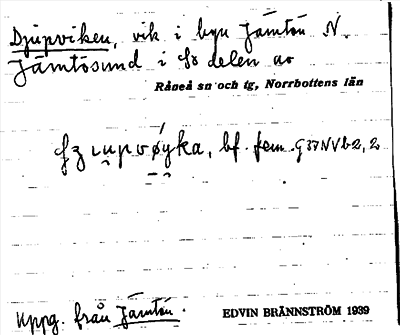 Djupviken, vik i byn Jämtön N.
Jämtösund i sö delen av
Råneå sn och tg, Norrbottens län
bf. fem. G 37 NV b 2, 2
Uppg. från Jämtön.
EDVIN BRÄNNSTRÖM 1939